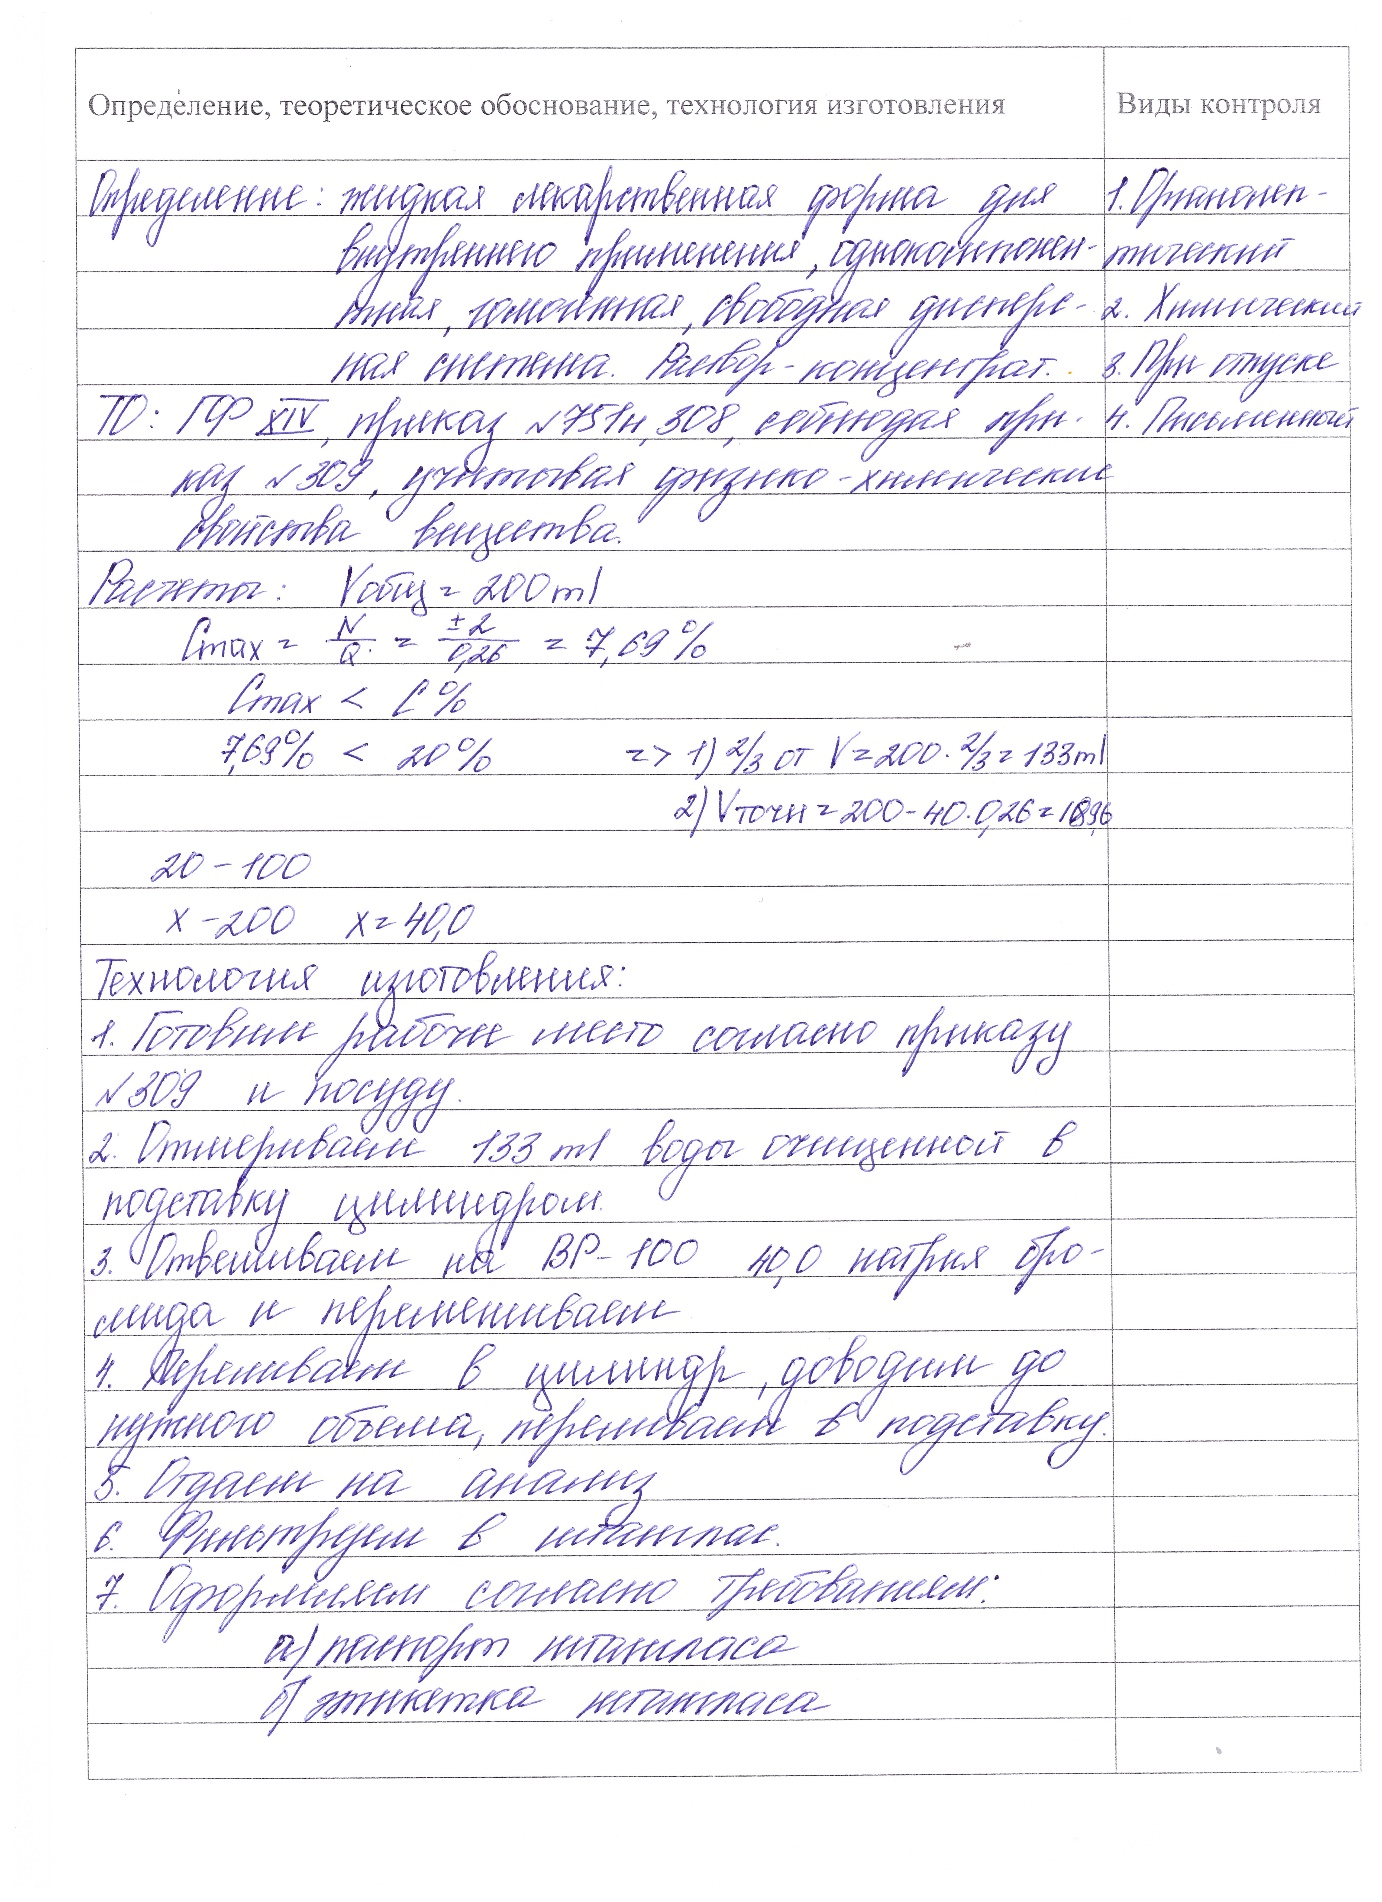 Определение, теоретическое обоснование, технология изготовления
Виды контроля
Определение: жидкая лекарственная форма для
внутреннего применения, однокомпонен-
тная, гомогенная, свободная дисперс-
ная система. Раствор-концентрат.
ТО: ГФ XIV, приказ №751н, 308, соблюдая при-
каз №309, учитывая физико-химические
свойства вещества.
Расчеты: Vобщ = 200 ml
Cmax = N/Q = ±2/0,26 = 7,69%
Cmax < C%
7,69% < 20% => 1) 2/3 от V = 200 · 2/3 = 133 ml
2) Vточн = 200 - 40 · 0,26 = 189,6
20 - 100
x - 200 x = 40,0
Технология изготовления:
1. Готовим рабочее место согласно приказу
№309 и посуду.
2. Отмериваем 133 ml воды очищенной в
подставку цилиндром.
3. Отвешиваем на ВР-100 40,0 натрия бро-
мида и перемешиваем
4. Переливаем в цилиндр, доводим до
нужного объема, переливаем в подставку.
5. Отдаем на анализ
6. Фильтруем в штанглас.
7. Оформляем согласно требованиям:
а) паспорт штангласа
б) этикетка штангласа
1. Органолеп-
тический
2. Химический
3. При отпуске
4. Письменный